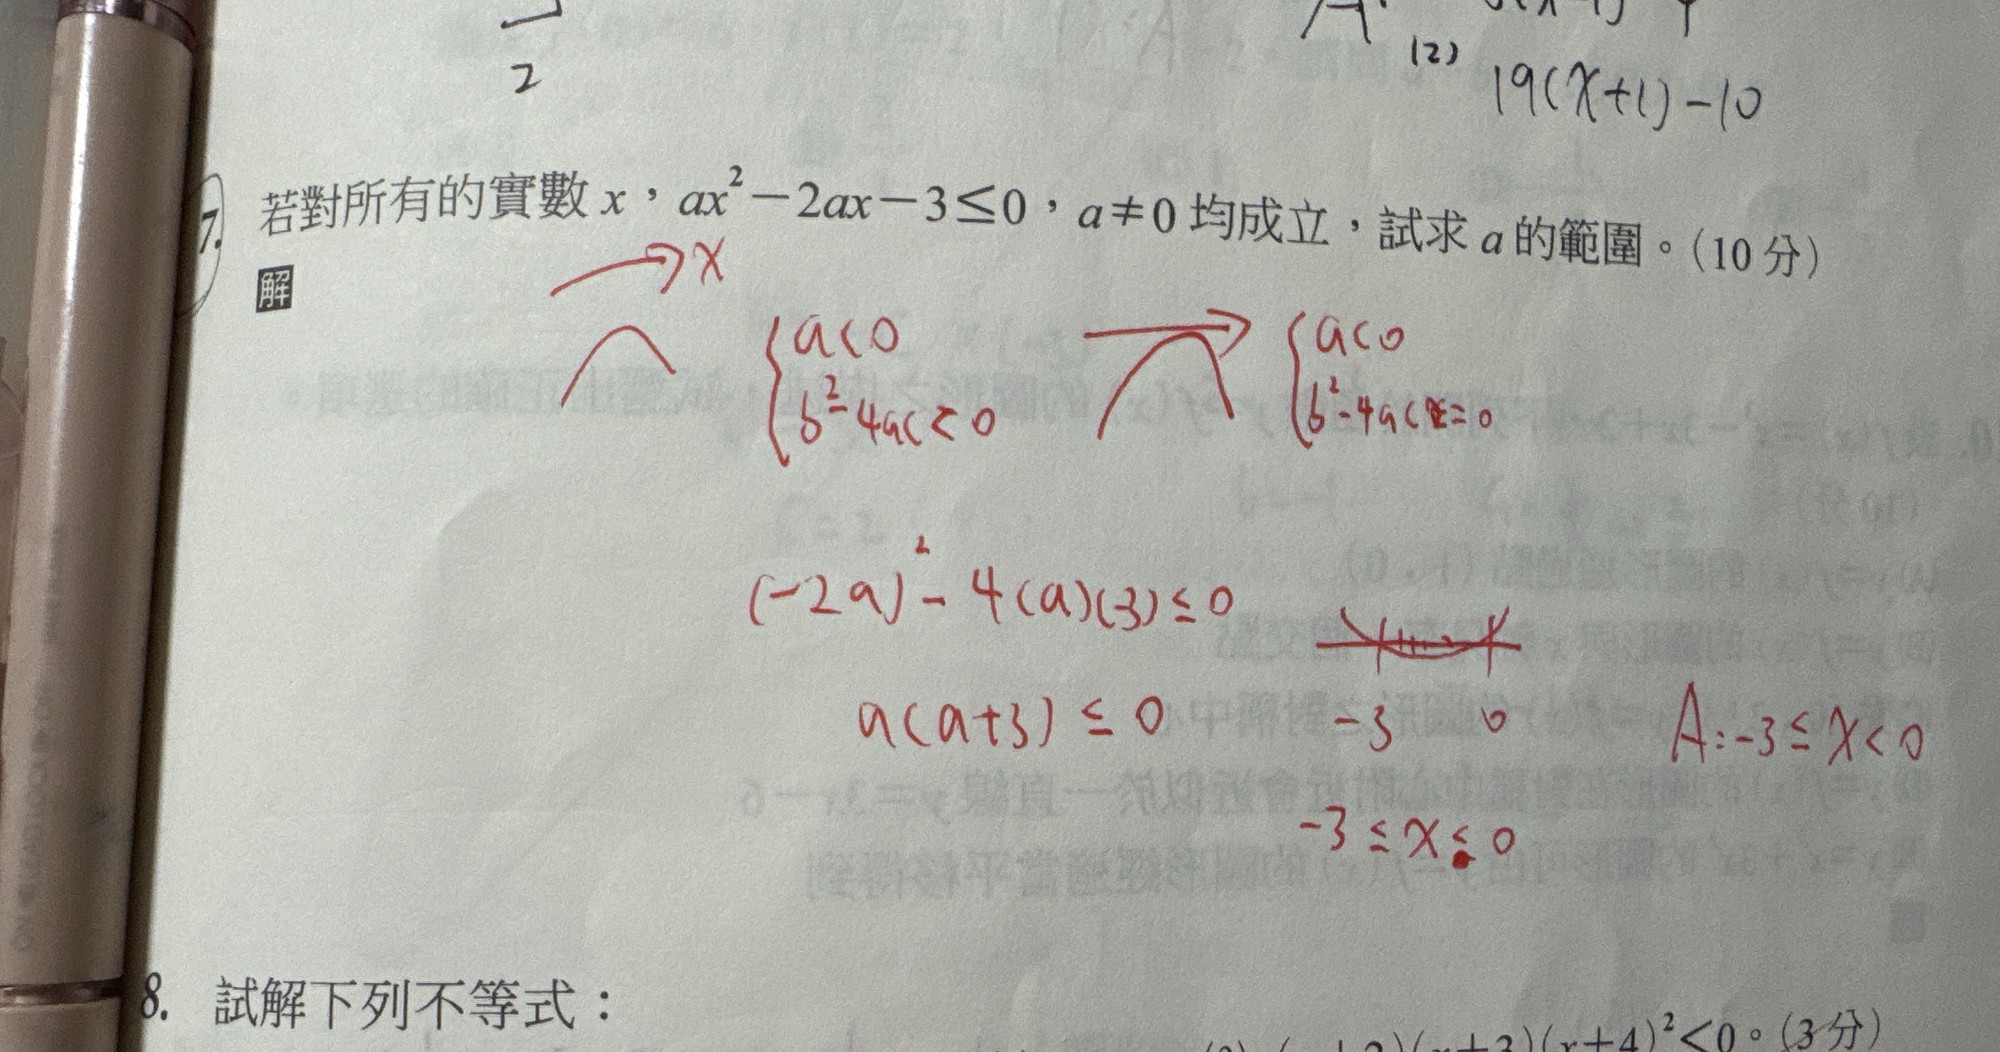 2
(2) 19(x+1)-10
7. 若對所有的實數 x,ax²-2ax-3≦0,a≠0 均成立,試求 a 的範圍。(10 分)
解
x
a<0
b²-4ac<0
a<0
b²-4ac=0
(-2a)²-4(a)(-3)≤0
a(a+3)≤0
-3 0
A:-3≤x<0
-3≤x≤0
8. 試解下列不等式:
(x+3)(x+4)²<0。(3分)